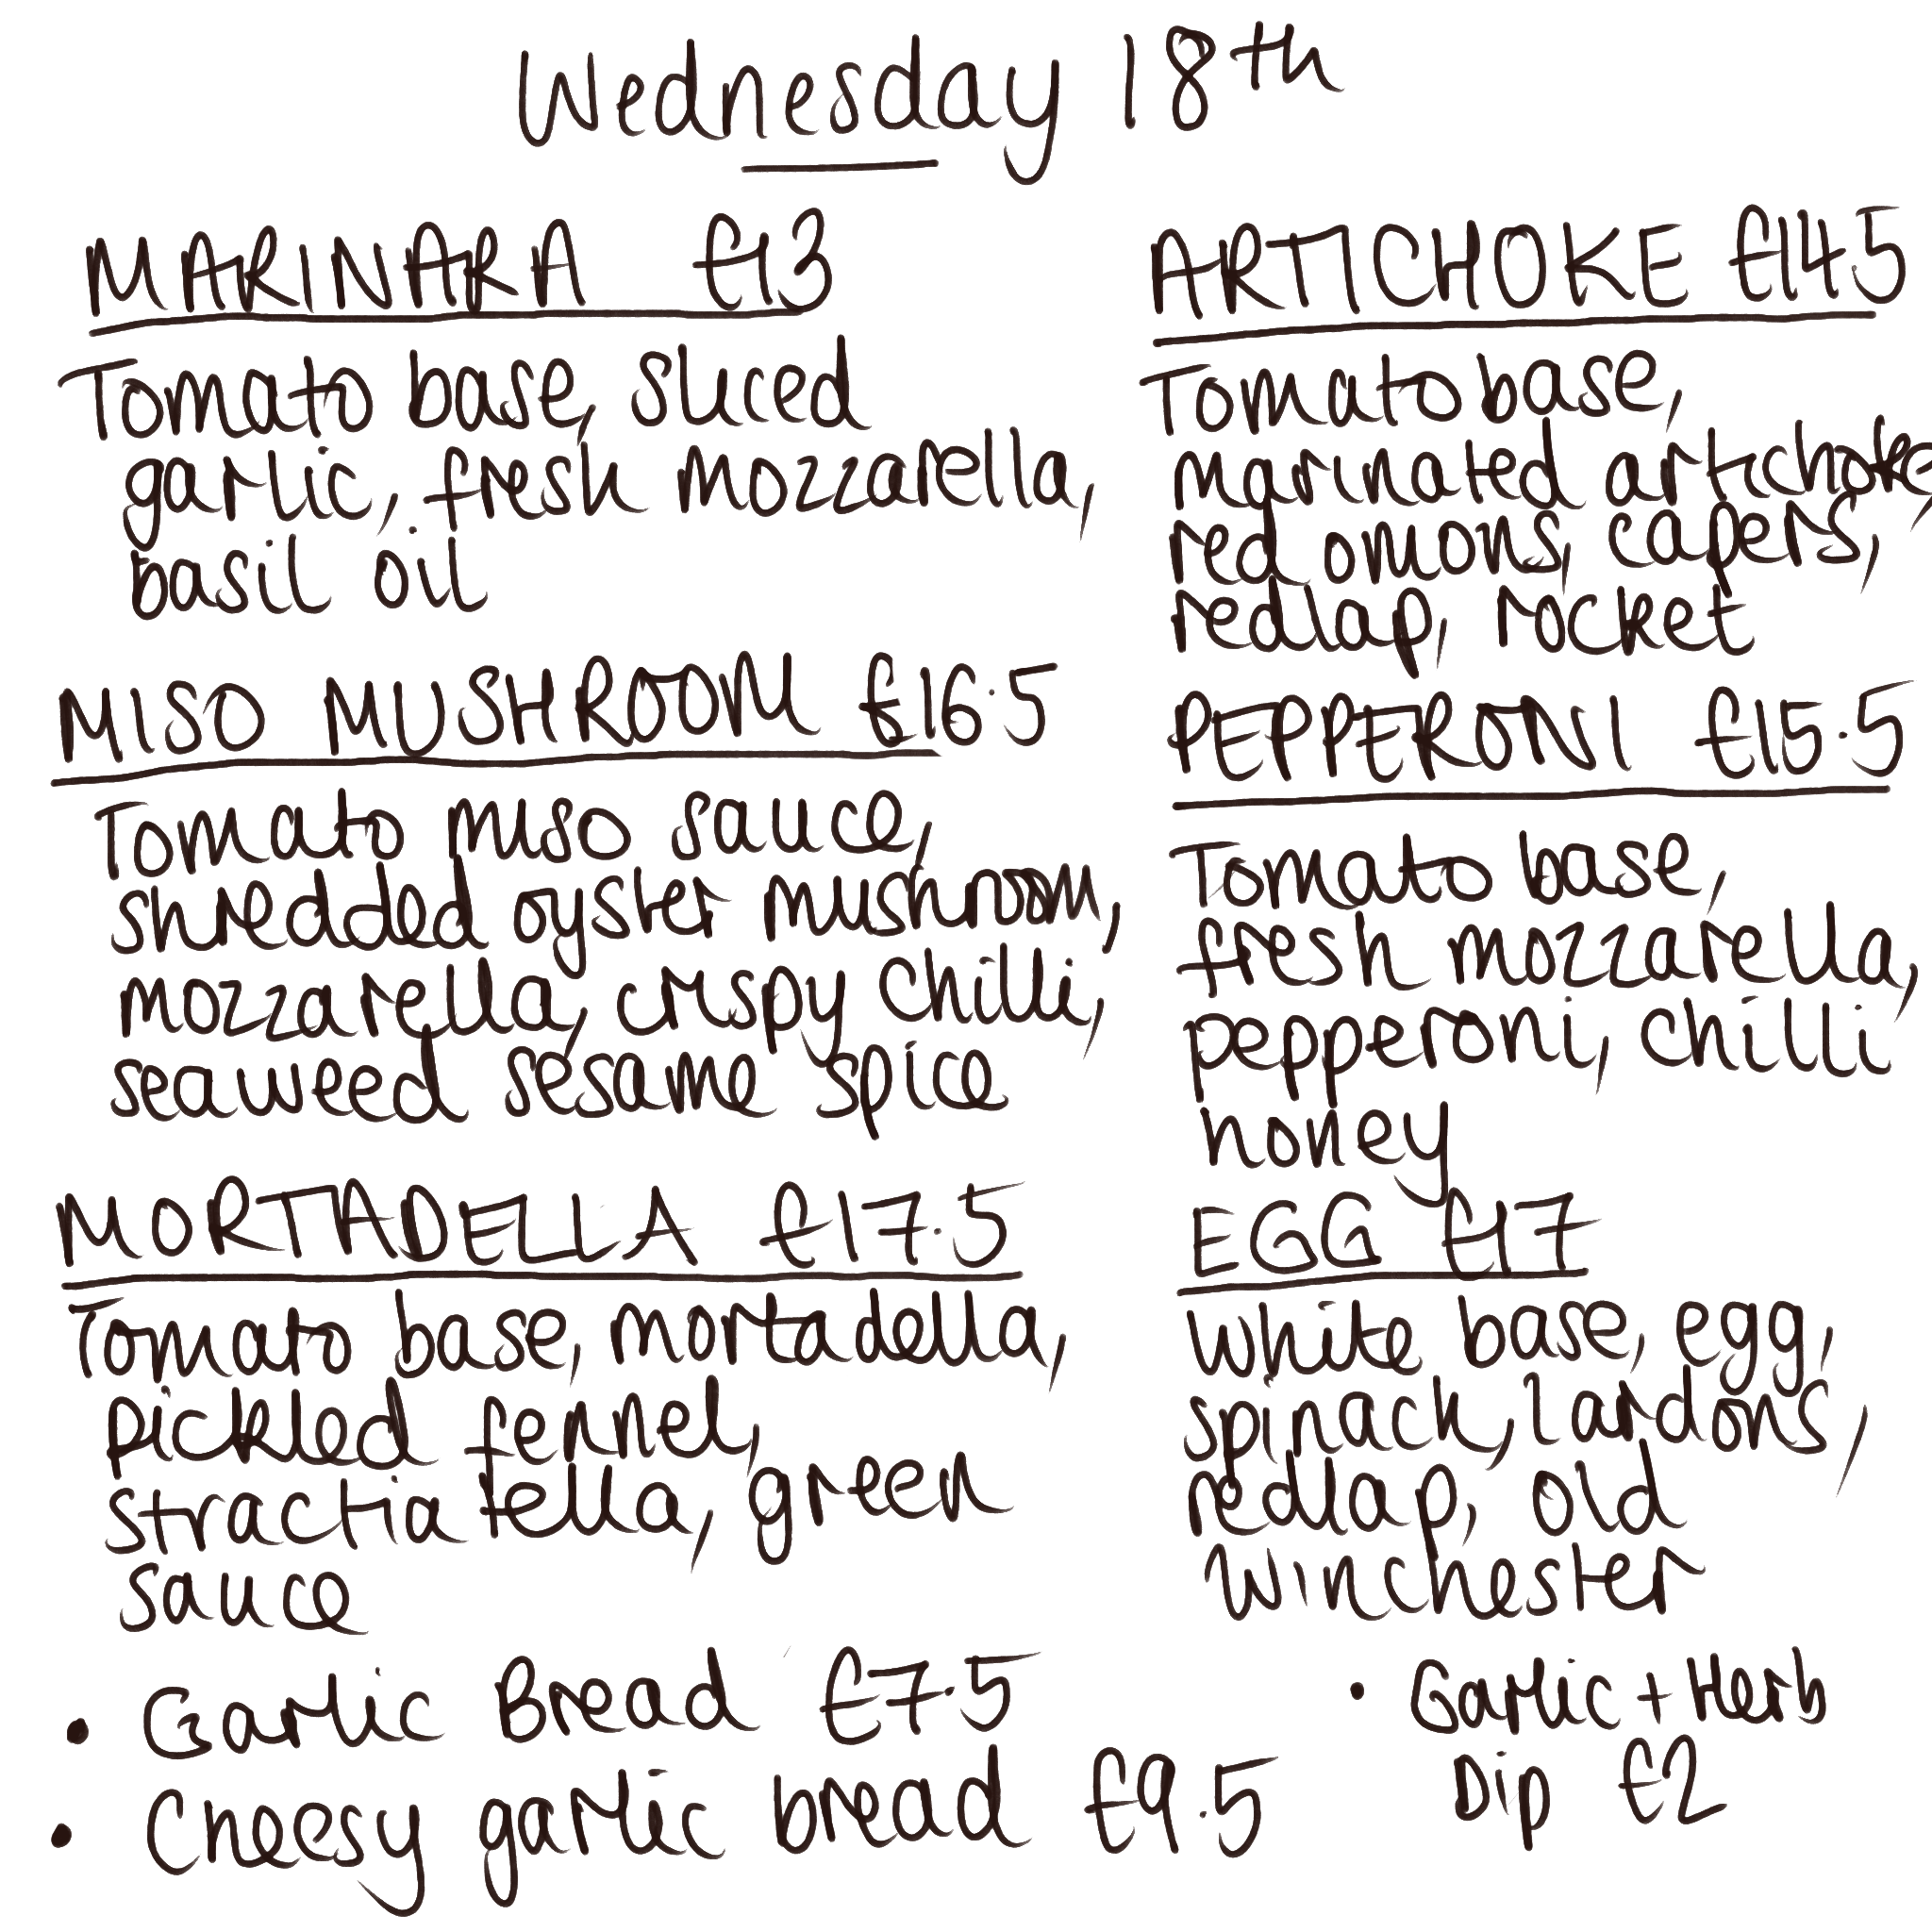 Wednesday 18th
MARINARA £13
Tomato base, sliced
garlic, fresh mozzarella,
basil oil
MISO MUSHROOM £16.5
Tomato miso sauce,
shredded oyster mushroom,
mozzarella, crispy chilli,
seaweed sesame spice
MORTADELLA £17.5
Tomato base, mortadella,
pickled fennel,
stracciatella, green
sauce
• Garlic Bread £7.5
• Cheesy garlic bread £9.5
ARTICHOKE £14.5
Tomato base,
marinated artichoke,
red onions, capers,
redlap, rocket
PEPPERONI £15.5
Tomato base,
fresh mozzarella,
pepperoni, chilli
honey
EGG £17
White base, egg,
spinach, lardons,
redlap, old
Winchester
• Garlic + Herb
Dip £2